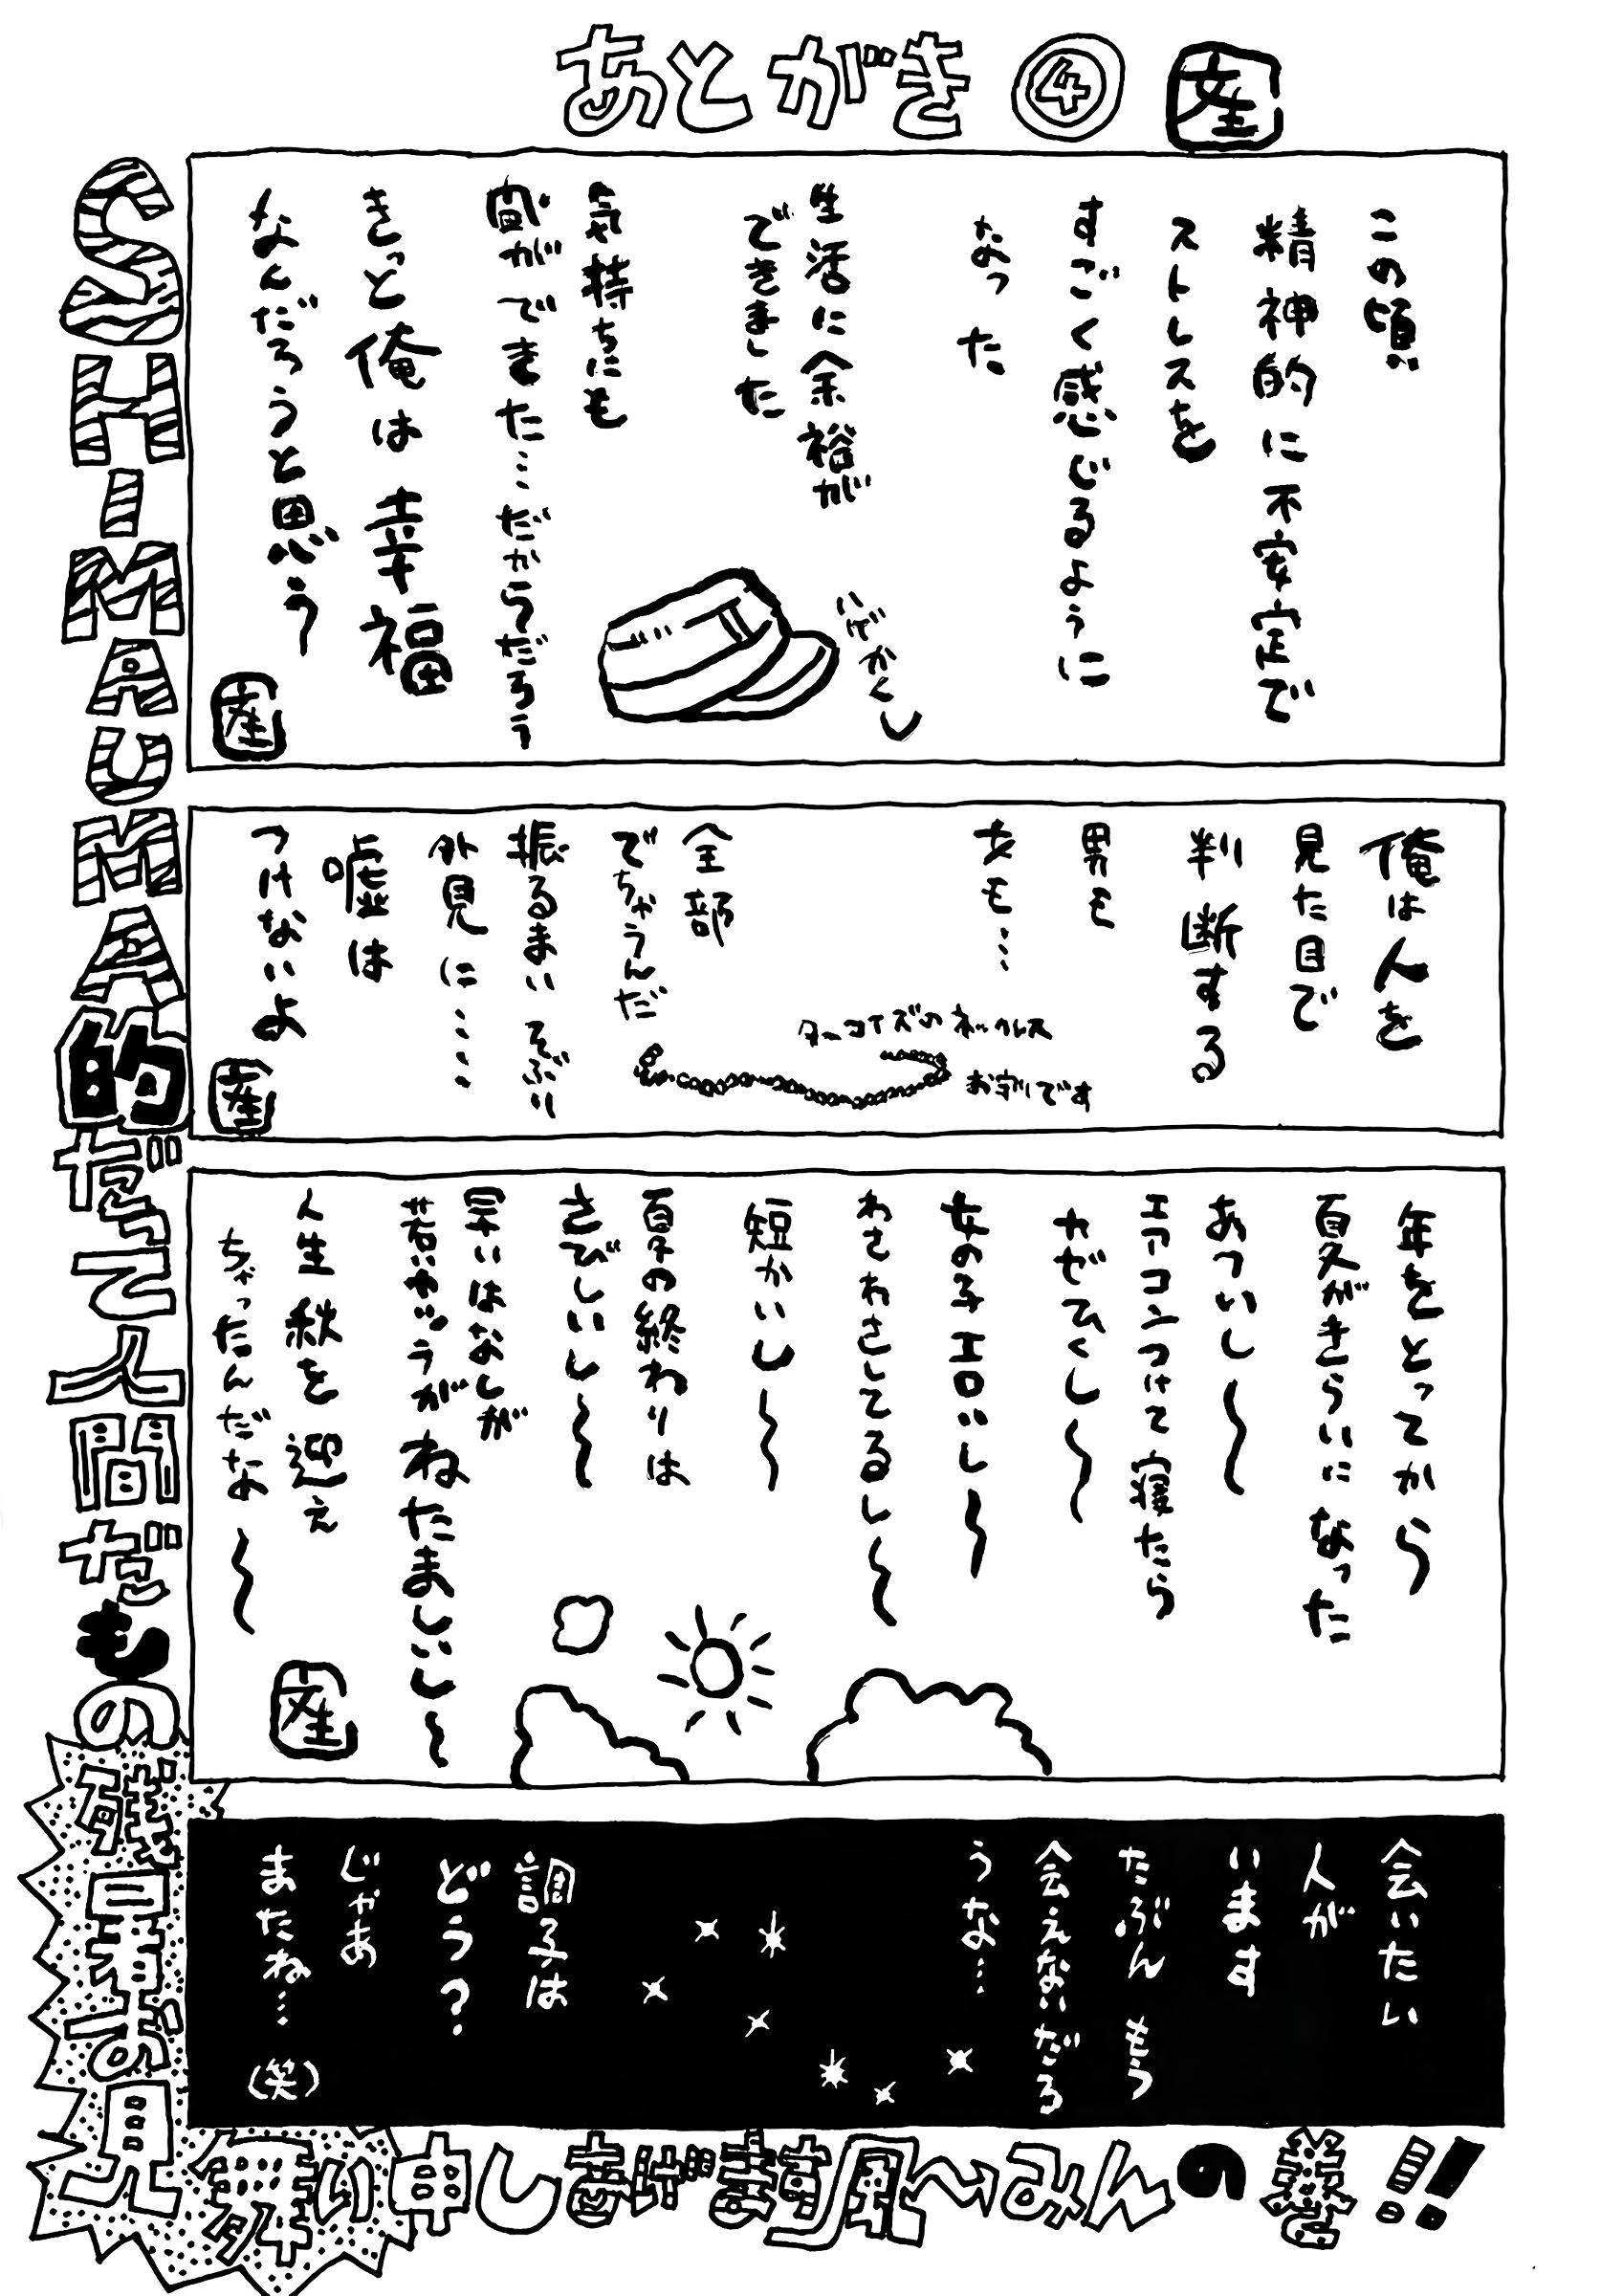 あとがき④
この頃
精神的に不安定で
ストレスを
すごく感じるように
なった
生活に余裕が
できました
気持ちにも
間がでまた…だからだろう
きっと俺は幸福
なんだろうと思う
はげかくし
俺は人を
見た目で
判断する
男も
女も…
全部
でちゃうんだ
振るまい そぶり
外見に……
嘘は
つけないよ
ターコイズのネックレス
お守りです
年をとってから
夏がきらいになった
あついし〜
エアコンつけて寝たら
カゼひくし〜
女の子エロいし〜
わさわさしてるし〜
短かいし〜
夏の終わりは
さびしいし〜
早いはなしが
若いヤツらがねたましいし〜
人生秋を迎え
ちゃったんだな〜
会いたい
人が
います
たぶん もう
会えないだろ
うな…
調子は
どう？
じゃあ
またね…(笑)
SHIMAUMA的だって人間だもの残暑お見
舞い申しあげます風へみんの!!